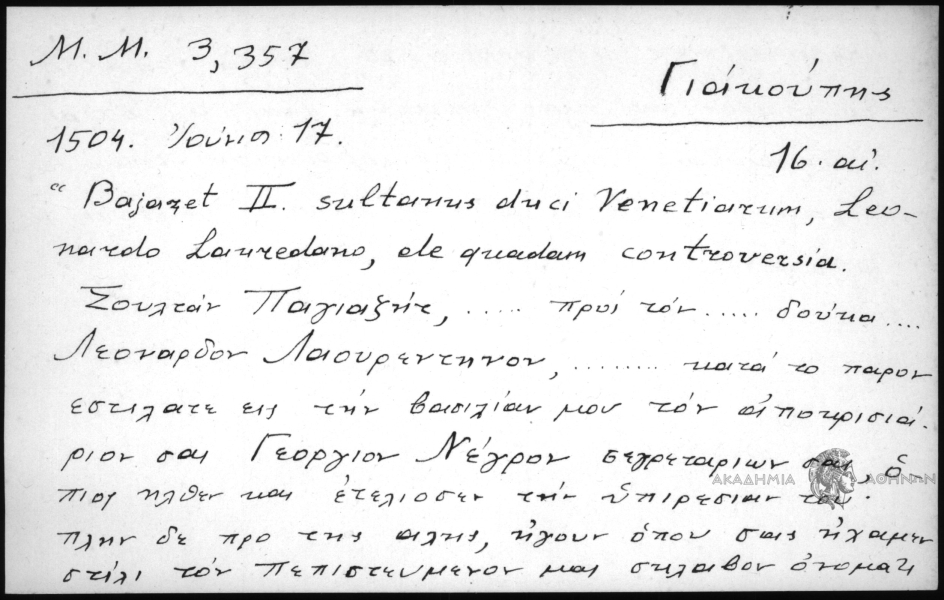 Μ. Μ. 3, 357
Γιάκούπης
1504. Ἰούνιο 17.
16. αἰ.
“ Bajazet II. sultanus duci Venetiarum, Leo-
nardo Lauredano, de quadam controversia.
Σουλτὰν Παγιαζήτ, ..... πρὸς τόν ..... δούκα ....
Λεοναρδον Λαουρεντηνον, ........ κατὰ το παρον
εστιλατε εις τὴν βασιλίαν μου τόν ἀποκρισιά-
ριον σας Γεοργιον Νέγρον σεγρεταριων σας, ὁ
ΑΚΑΔΗΜΙΑ ΑΘΗΝΩΝ
πιος ηλθεν και ἐτελιοσεν τὴν ὑπιρεσιαν του.
πλην δε προ της αλης, ἠγουν ὁπου σας ἠχαμεν
στίλι τὸν πεπιστευμενον μας σκλαβον ὀνοματι